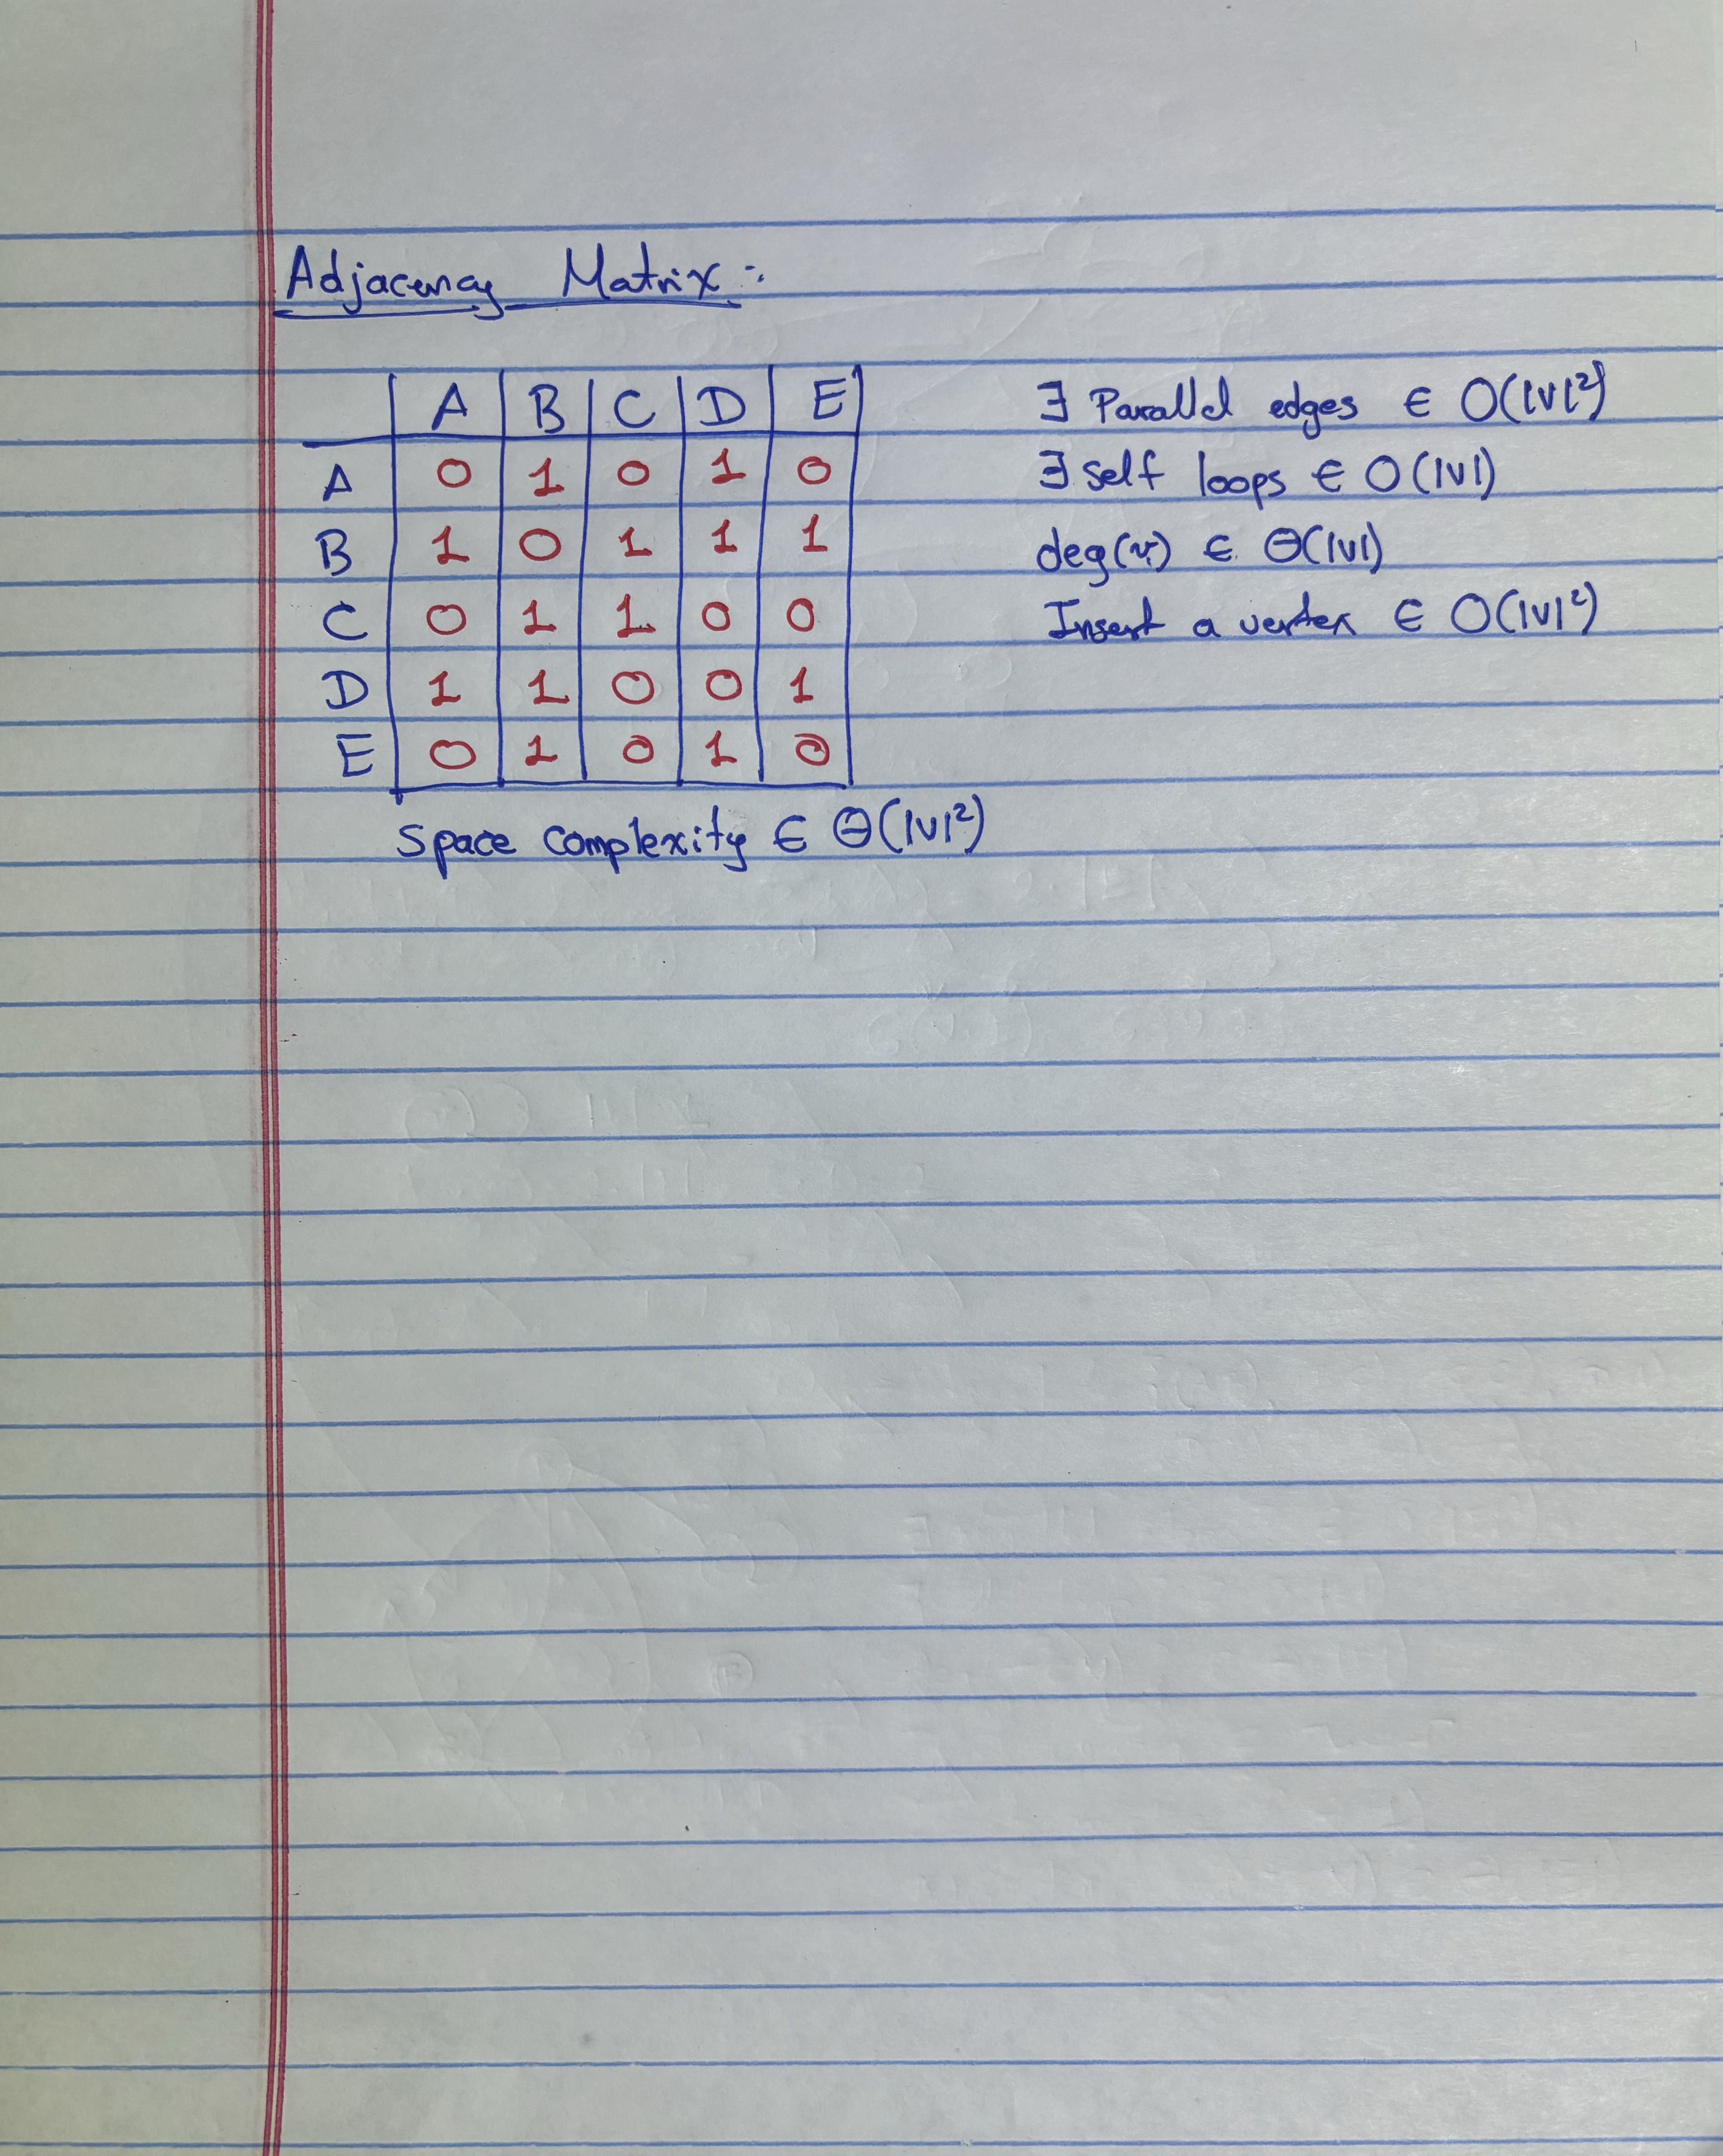 Adjacency Matrix:-
A B C D E
A 0 1 0 1 0
B 1 0 1 1 1
C 0 1 1 0 0
D 1 1 0 0 1
E 0 1 0 1 0
Space complexity ∈ Θ(|V|²)
∃ Parallel edges ∈ O(|V|²)
∃ self loops ∈ O(|V|)
deg(v) ∈ Θ(|V|)
Insert a vertex ∈ O(|V|²)